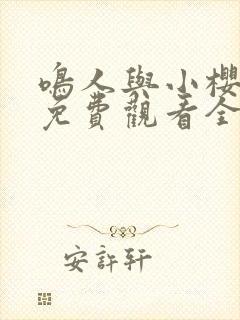 鳴人與小櫻
免費觀看全
安許軒